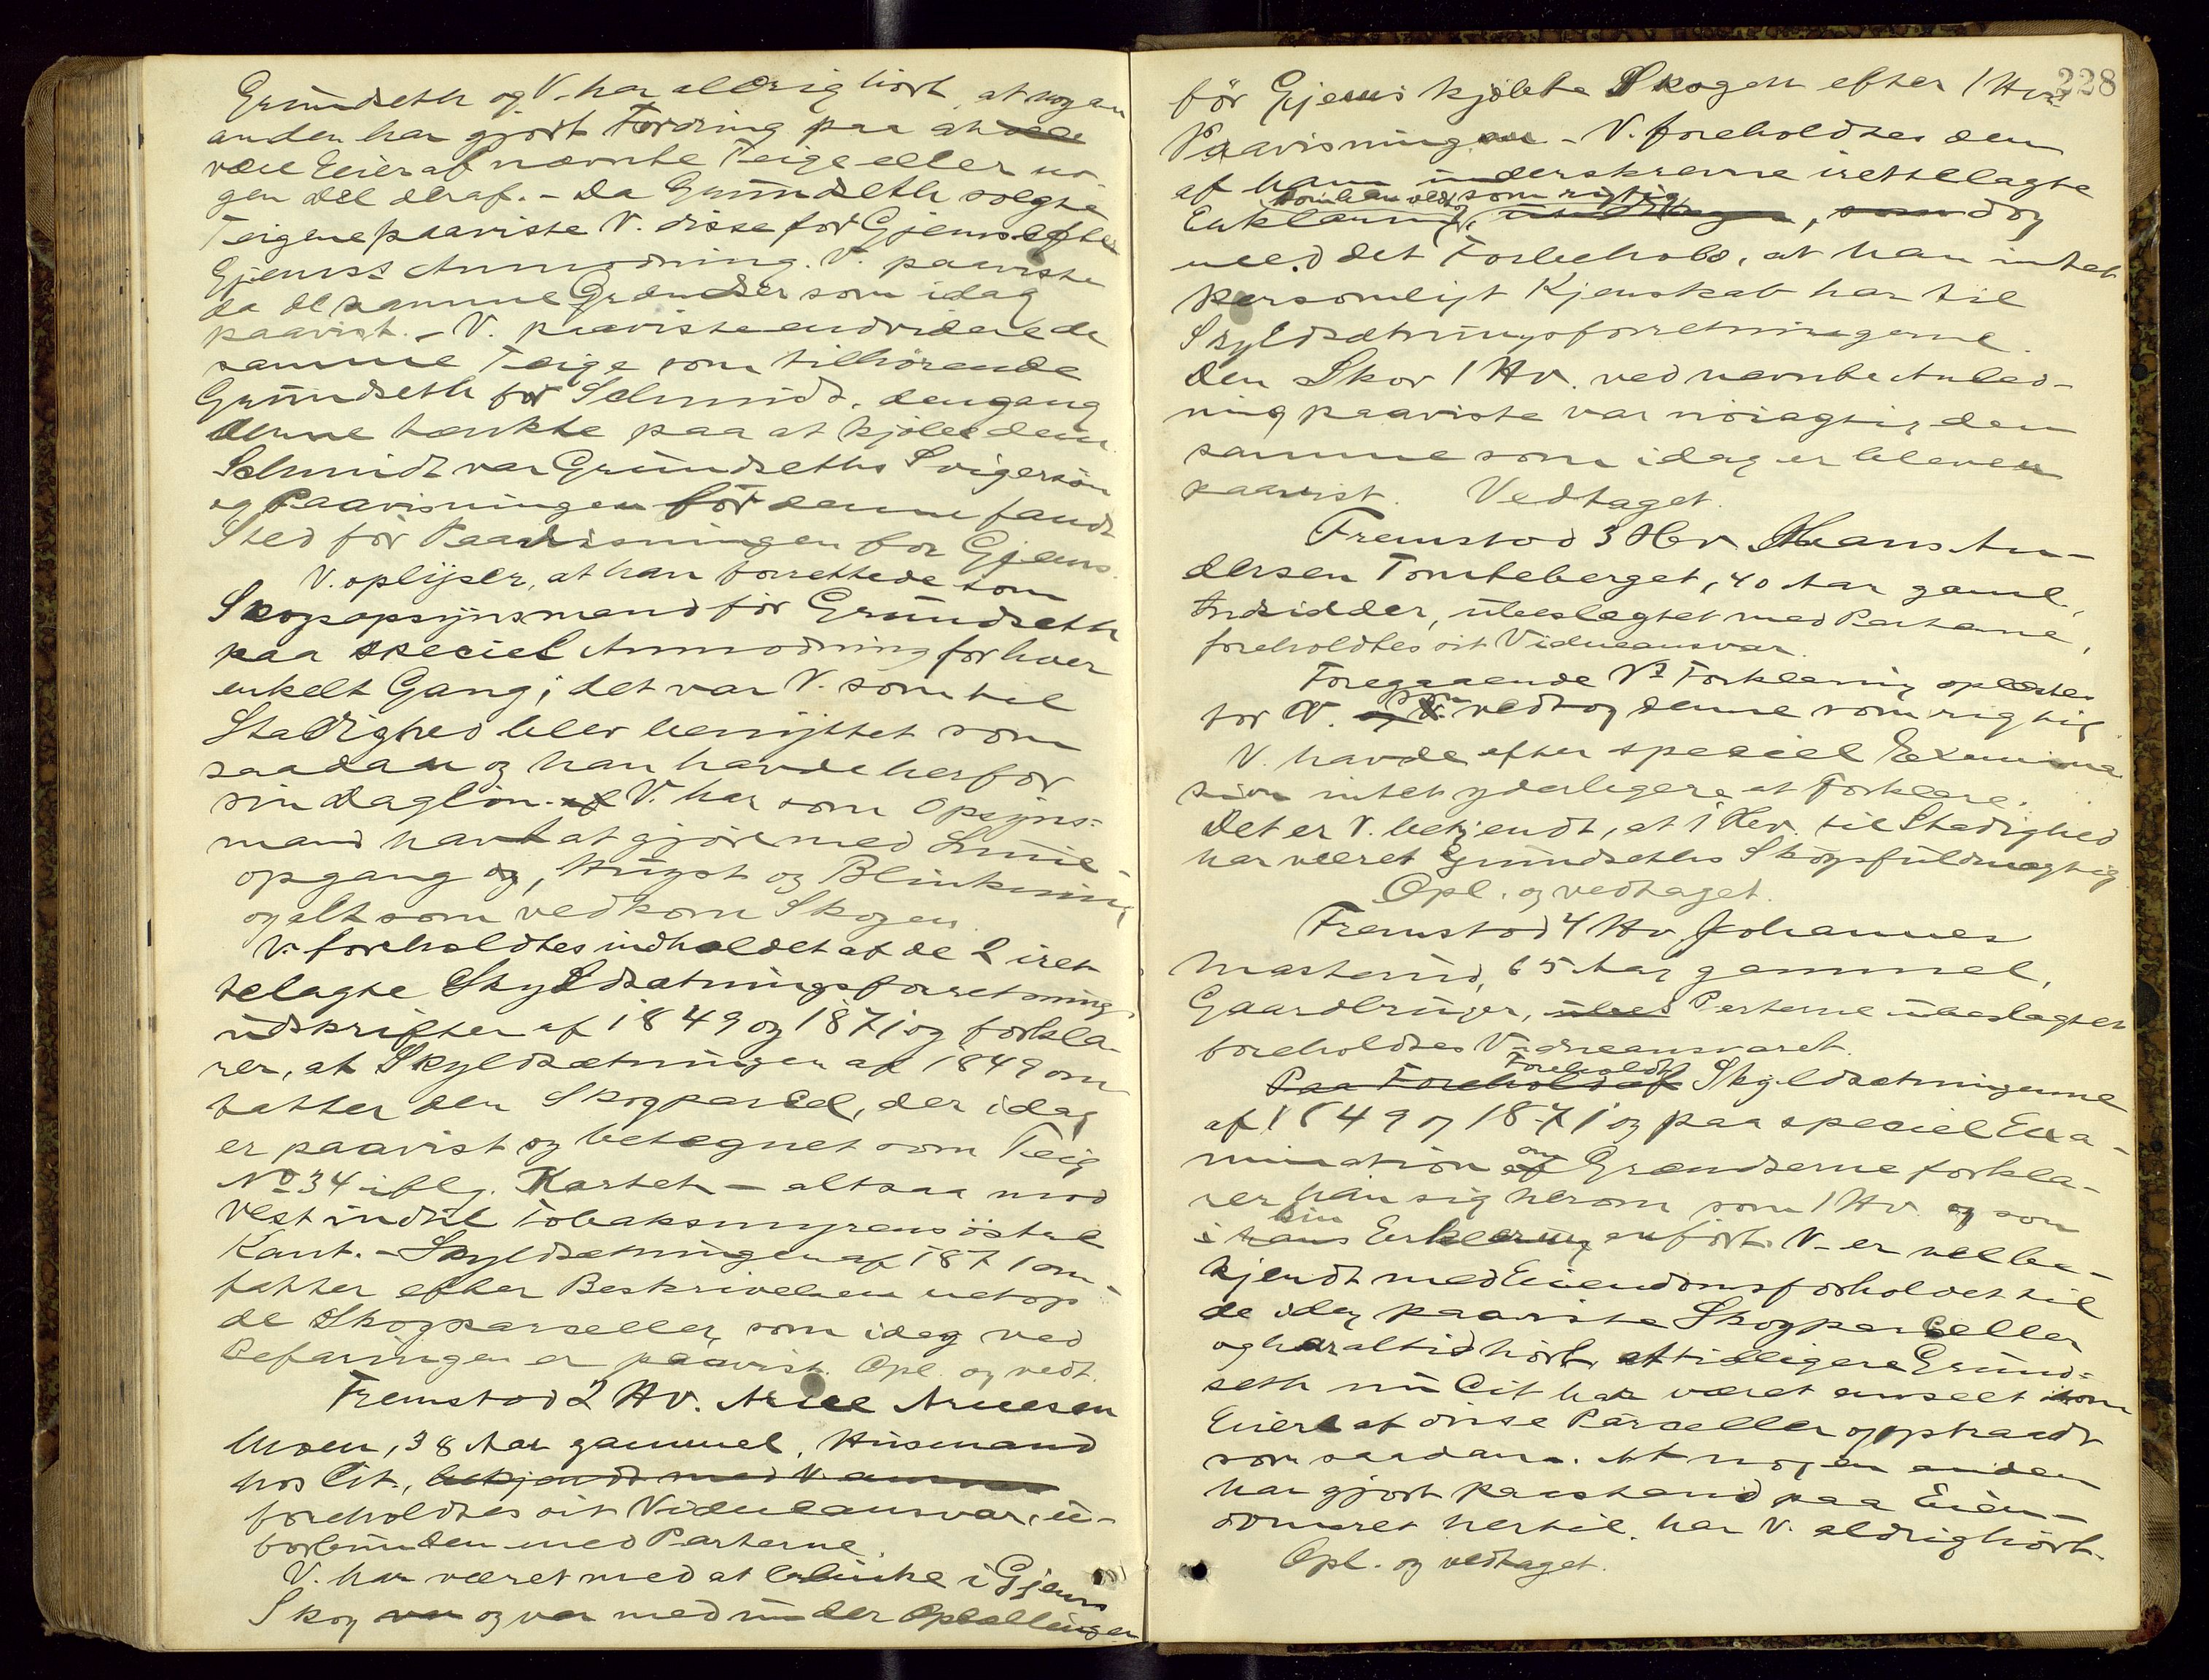 Grundseth og V. har aldrig hört, at nogen
anden har gjort Fordring paa at være
være Eier af nævnte Teige eller no-
gen del deraf. - Da Grundseth solgte
Teigene paaviste V. disse for Gjems efter
Gjemss Anmodning. V. paaviste
da de samme Grændser som idag
paavist. - V. paaviste endvidere de
samme Teige som tilhörende
Grundseth for Schmidt, dengang
denne tænkte paa at kjöbe dem
Schmidt var Grundseths Svigersön
og Paavisningen för denne fandt
Sted för Paavisningen for Gjems.
V. oplyser, at han forrettede som
Skogopsynsmand för Grundseth
paa speciel Anmodning for hver
enkelt Gang; det var V. som til
Stadighed blev benyttet som
saadan og han havde herfor
sin daglön. V. har som Opsyns-
mand havt at gjöre med Linie-
opgang og, Hugst og Blinkning
og alt som vedkom Skogen.
V. foreholdtes indholdet af de 2 iret-
telagte Skyldsætningsforretnings
udskrifter af 1849 og 1871 og forkla-
rer, at Skyldsætningen af 1849 om
fatter den Skogparcel, der idag
er paavist og betegnet som Teig
No 34 iflg. Kartet - altsaa mod
Vest indtil Tobaksmyrens östre
Kant. - Skyldsetningen af 1871 om-
fatter efter Beskrivelsen netop
de Skogparceller, som idag ved
Befaringen er paavist. Opl. og vedt.
Fremstod 2 Hv. Arne Arnesen
Moen, 38 Aar gammel, Husmand
hos Cit., bekjendt med V. ansvar
foreholdtes sit Vidneansvar, u-
forbunden med Parterne.
V. har været med at blinke i Gjems
Skog var og var med under Optællingen
228
för Gjems kjöbte Skogen efter 1 Hvs
Paavisningen - V. foreholdtes den
af ham underskrevne irettelagte
som han vedtog som rigtig
Erklæring, dog
med det Forbehold, at han intet
personligt Kjenskab har til
Skyldsætningsforretningerne.
Den Skov 1 Hv. ved nævnte Anled-
ning paaviste var nöiagtig den
samme som idag er bleven
paavist. Vedtaget.
Fremstod 3 Hv Hans An-
dersen Tomteberget, 40 Aar gaml.,
Indsidder, ubeslegtet med Parterne,
foreholdtes sit Vidneansvar.
Foregaaende Vs Forklaring oplestes
som
for V. og V. vedtog denne som rigtig
V. havde efter speciel Examina
sion intet yderligere at forklare.
Det er V. bekjendt, at 1 Hv. til Stadighed
har været Grundseths Skogsfuldmægtig
Opl. og vedtaget.
Fremstod 4 Hv Johannes
Masterud, 65 Aar gammel,
Gaardbruger, ubes Parterne ubeslagtet
foreholdtes Vidneansvaret.
Foreholdt
Paa Forehold af Skyldsætningerne
af 1849 og 1871 og paa speciel Exa-
om
mination af Grændserne forkla-
rer han sig herom som 1 Hv. og som
sin
i hans Erklæring anfört. V. er vel be-
kjendt med Eiendomsforholdet til
de idag paaviste Skogparceller
og har altid hört, at tidligere Grund-
seth nu Cit har været anseet som
Eiere af disse Parceller og optraadt
som saadan. At nogen anden
har gjort Paastand paa Eien-
domsret hertil, har V. aldrig hört.
Opl. og vedtaget.